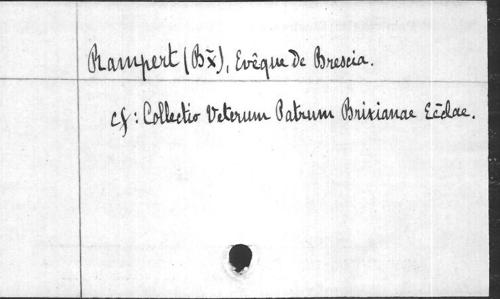 Rampert (Bx̃), Evêque de Brescia.
cf: Collectio Veterum Patrum Brixianae Ec̃clae.